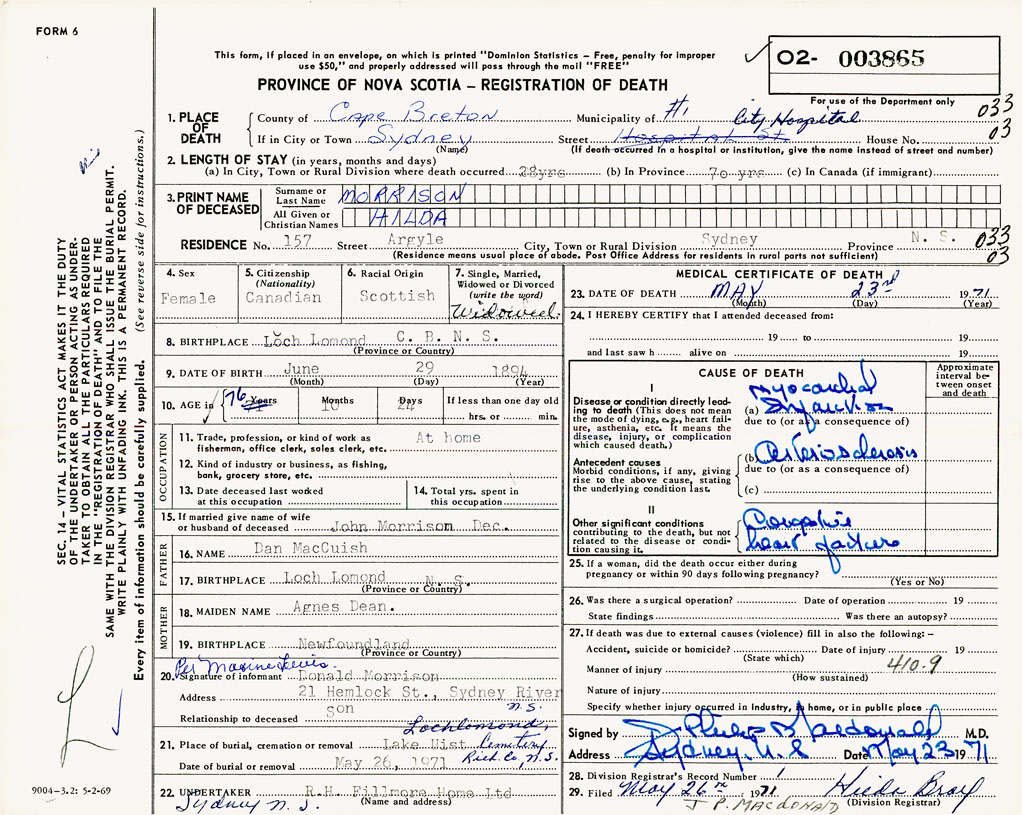 FORM 6
This form, if placed in an envelope, on which is printed "Dominion Statistics – Free, penalty for improper
use $50," and properly addressed will pass through the mail "FREE"
02- 003865
PROVINCE OF NOVA SCOTIA – REGISTRATION OF DEATH
For use of the Department only
033
03
1. PLACE OF DEATH
County of Cape Breton Municipality of #1 City Hospital
If in City or Town Sydney Street Hospital St House No.
(Name) (If death occurred in a hospital or institution, give the name instead of street and number)
2. LENGTH OF STAY (in years, months and days)
(a) In City, Town or Rural Division where death occurred 28yrs (b) In Province 70 yrs (c) In Canada (if immigrant)
3. PRINT NAME OF DECEASED
Surname or Last Name MORRISON
All Given or Christian Names HILDA
RESIDENCE No. 157 Street Argyle City, Town or Rural Division Sydney Province N. S. 033
(Residence means usual place of abode. Post Office Address for residents in rural parts not sufficient) 03
4. Sex
Female
5. Citizenship
(Nationality)
Canadian
6. Racial Origin
Scottish
7. Single, Married,
Widowed or Divorced
(write the word)
Widowed.
8. BIRTHPLACE Loch Lomond C. B. N. S.
(Province or Country)
9. DATE OF BIRTH June 29 1894
(Month) (Day) (Year)
10. AGE in 76 Years Months 10 Days 24 If less than one day old
hrs. or min.
OCCUPATION
11. Trade, profession, or kind of work as At home
fisherman, office clerk, sales clerk, etc.
12. Kind of industry or business, as fishing,
bank, grocery store, etc.
13. Date deceased last worked
at this occupation
14. Total yrs. spent in
this occupation
15. If married give name of wife
or husband of deceased John Morrison Dec.
FATHER
16. NAME Dan MacCuish
17. BIRTHPLACE Loch Lomond N. S.
(Province or Country)
MOTHER
18. MAIDEN NAME Agnes Dean.
19. BIRTHPLACE Newfoundland
(Province or Country)
Per Maxine Lewis.
20. Signature of informant Donald Morrison
Address 21 Hemlock St., Sydney River
N.S.
Relationship to deceased son
Lochlomond,
21. Place of burial, cremation or removal Lake Uist Cemetery
Date of burial or removal May 26, 1971 Rich. Co, N.S.
22. UNDERTAKER R.H. Fillmore Home Ltd
Sydney N.S. (Name and address)
MEDICAL CERTIFICATE OF DEATH
23. DATE OF DEATH MAY 23rd 1971
(Month) (Day) (Year)
24. I HEREBY CERTIFY that I attended deceased from:
19 to 19
and last saw h alive on 19
CAUSE OF DEATH
Approximate
interval be-
tween onset
and death
I
Disease or condition directly lead-
ing to death (This does not mean
the mode of dying, e.g., heart fail-
ure, asthenia, etc. It means the
disease, injury, or complication
which caused death.)
Myocardial
(a) Infarction
due to (or as a consequence of)
Antecedent causes
Morbid conditions, if any, giving
rise to the above cause, stating
the underlying condition last.
(b) Arteriosclerosis
due to (or as a consequence of)
(c)
II
Other significant conditions
contributing to the death, but not
related to the disease or condi-
tion causing it.
Congestive
heart failure
25. If a woman, did the death occur either during
pregnancy or within 90 days following pregnancy?
(Yes or No)
26. Was there a surgical operation? Date of operation 19
State findings Was there an autopsy?
27. If death was due to external causes (violence) fill in also the following: –
Accident, suicide or homicide? Date of injury 19
(State which) 410.9
Manner of injury
(How sustained)
Nature of injury
Specify whether injury occurred in industry, in home, or in public place
Signed by D. Philip Macdonald M.D.
Address Sydney N.S Date May 23 1971
28. Division Registrar's Record Number 1
29. Filed May 26th 1971 Hilda Bray
J P. MACDONALD (Division Registrar)
SEC. 14 – VITAL STATISTICS ACT MAKES IT THE DUTY
OF THE UNDERTAKER OR PERSON ACTING AS UNDER-
TAKER TO OBTAIN ALL THE PARTICULARS REQUIRED
IN THE "REGISTRATION OF DEATH" AND TO FILE THE
SAME WITH THE DIVISION REGISTRAR WHO SHALL ISSUE THE BURIAL PERMIT.
WRITE PLAINLY WITH UNFADING INK. THIS IS A PERMANENT RECORD.
Every item of information should be carefully supplied. (See reverse side for instructions.)
9004–3.2: 5-2-69